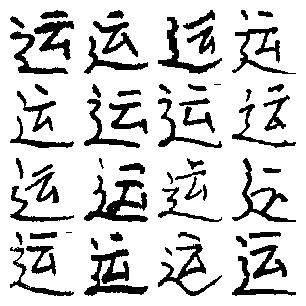 运运运运
运运运运
运运运运
运运运运